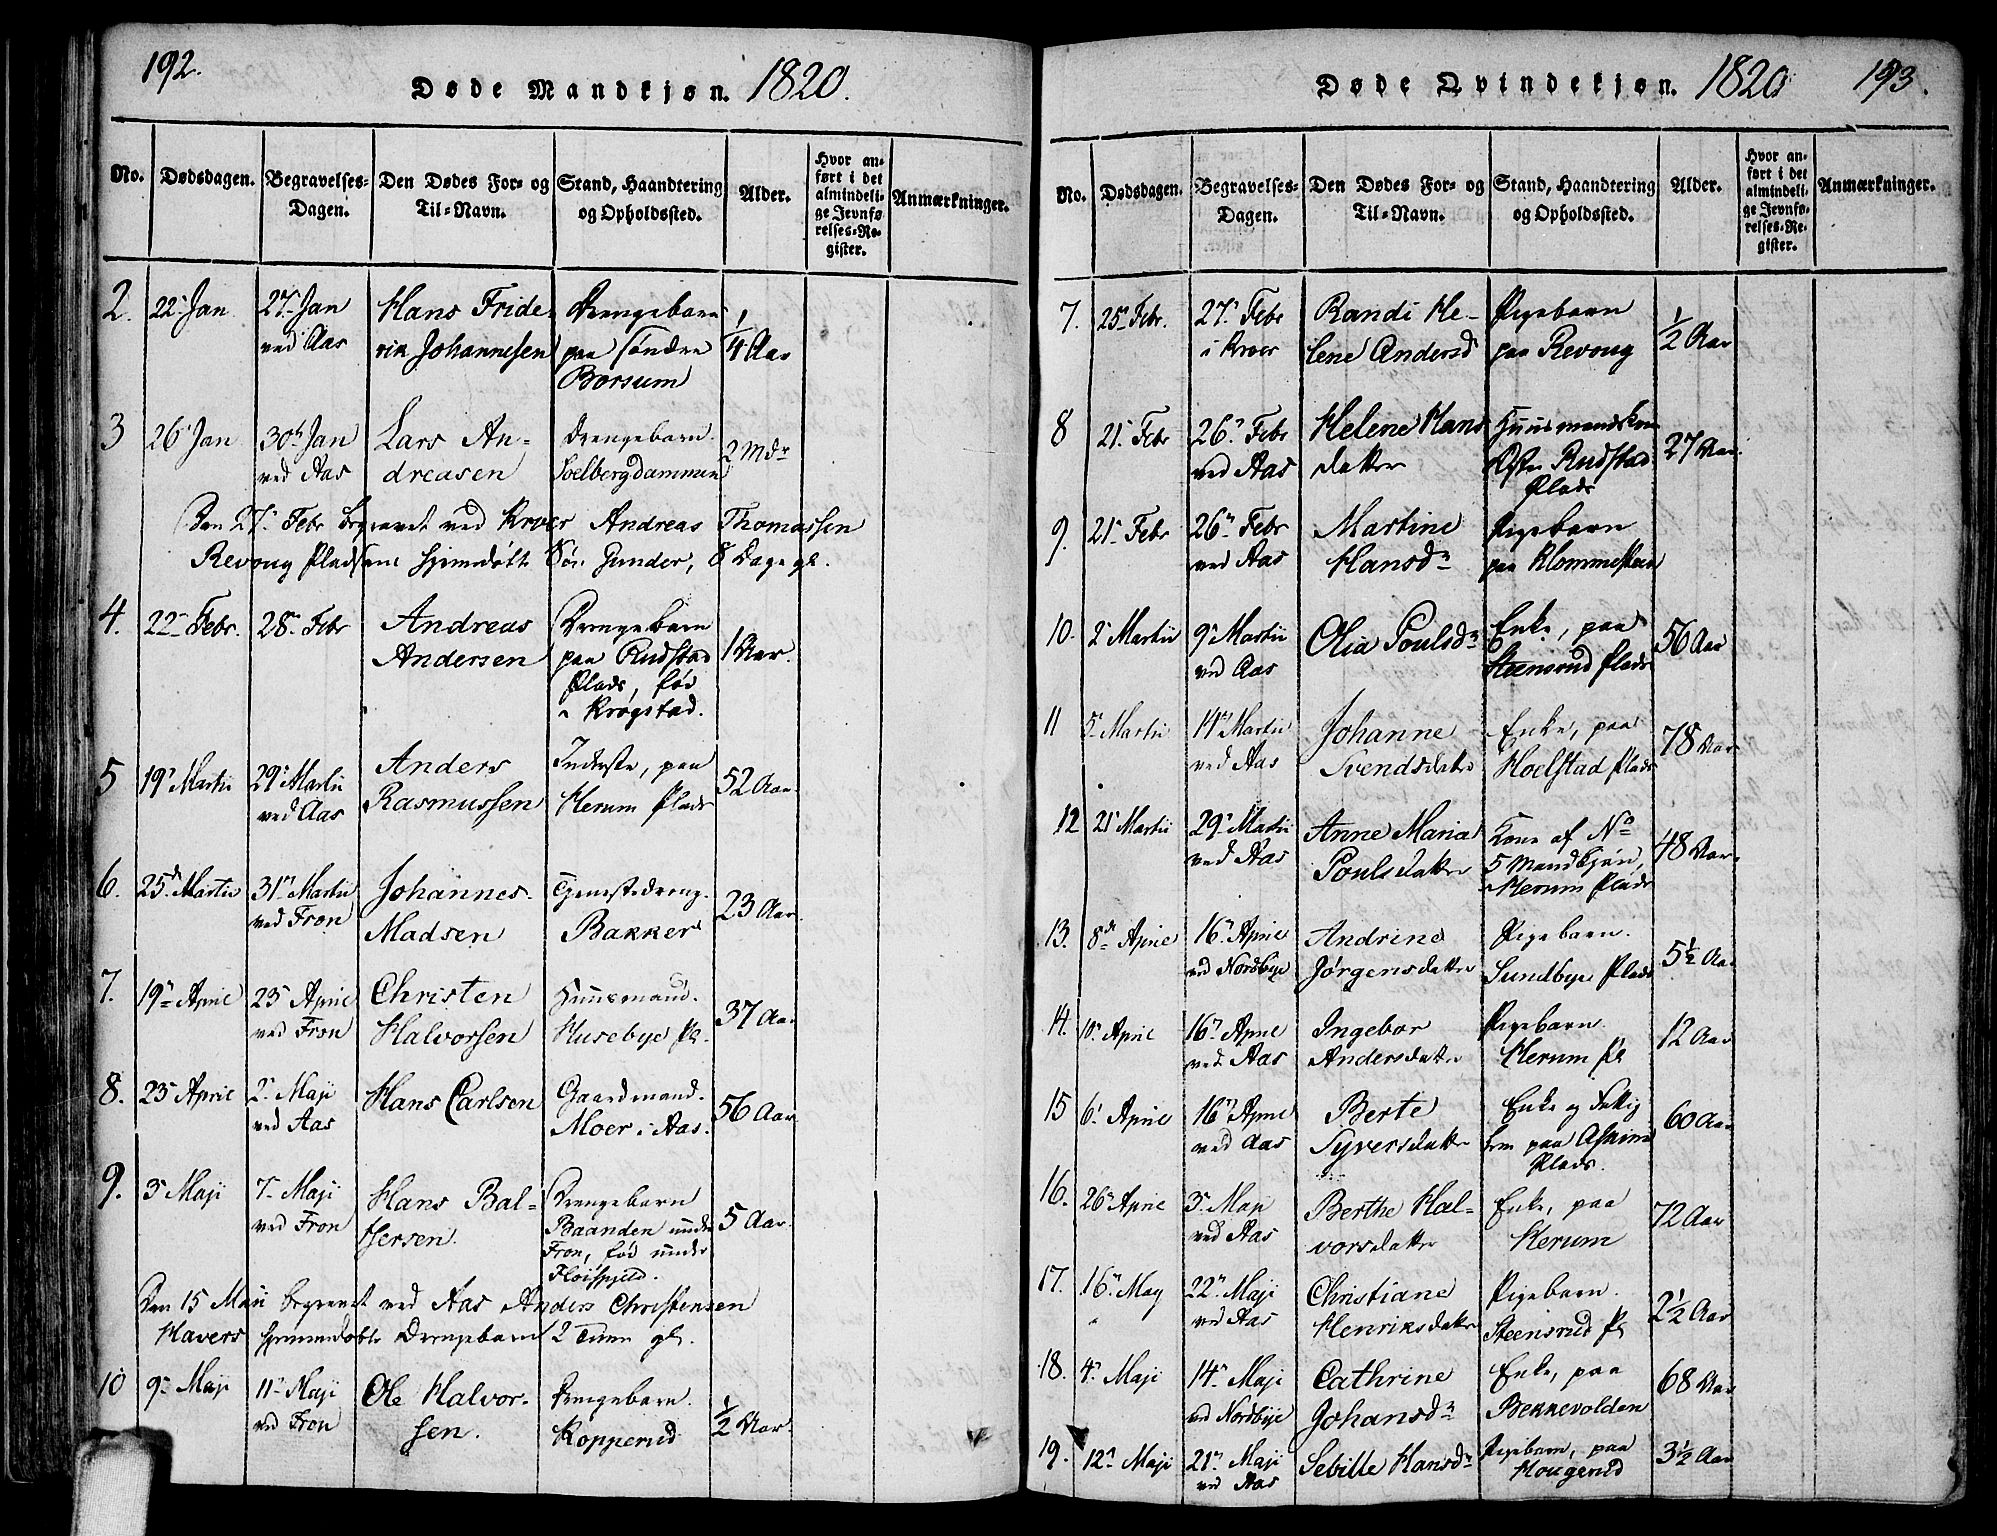 192.
Døde Mandkjøn. 1820.
No.
Dødsdagen.
Begravelses-
Dagen.
Den Dødes For- og
Til-Navn.
Stand, Haandtering
og Opholdssted.
Alder.
Hvor an-
ført i det
almindeli-
ge Jevnfø-
relses-Re-
gister.
Anmærkninger.
2. 22 Jan
27 Jan
ved Aas
Hans Fride-
rik Johannesen
Drengebarn
paa Søndre
Borsum
1/4 Aar
3 26 Jan
30te Jan
ved Aas
Lars An-
dreasen
Drengebarn.
Solbergdammen
2 Mdr
Den 27 Febr begravet ved Kroer Andreas Thomassen
Revoug Pladsens hjemdøbte Søn Gunder, 8 Dage gl.
4. 22 Febr.
28 Febr
Andreas
Andersen
Drengebarn
paa Rudstad
Plads, fød
i Krogstad.
1 Aar.
5 19 Martii
29 Martii
ved Aas
Anders
Rasmussen
Inderste, paa
Kerum Plads
52 Aar
6. 25de Martii
31 Martii
ved Fron
Johannes
Madsen
Tjenestedreng.
Bakker
23 Aar.
7. 19 April
23 April
ved Fron
Christen
Halvorsen
Huusmand.
Husebye Pl.
37 Aar
8. 23 April
2 Maji
ved Aas
Hans Carlsen
Gaardmand.
Moer i Aas.
56 Aar
9. 3 Maji
7 Maji
ved Fron
Hans Bal-
tersen.
Drengebarn
Baanden under
Fron, fød under
Fløisjeld.
5 Aar.
Den 15 Maji begravet ved Aas Anders Christensen
Havers hjemmedøbte Drengebarn 2 Timer gl.
10 9 Maji
11 Maji
ved Fron
Ole Halvor-
sen.
Drengebarn.
Kopperud
1/2 Aar.
Døde Qvindekjøn. 1820 193.
No.
Dødsdagen.
Begravelses-
Dagen.
Den Dødes For- og
Til-Navn.
Stand, Haandtering
og Opholdssted.
Alder.
Hvor an-
ført i det
almindeli-
ge Jevnfø-
relses-Re-
gister.
Anmærkninger.
7. 25 Febr.
27 Febr
i Kroer
Randi He-
lene Andersd
Pigebarn
paa Revoug
1/2 Aar
8 21 Febr
26 Febr
ved Aas
Helene Hans
datter
Huusmandskone
Rudstad
Plads
27 Aar.
9. 21 Febr
26 Febr
ved Aas
Martine
Hansdr
Pigebarn
paa Klommesteen
10. 2 Martii
9 Martii
ved Aas
Olia Poulsdr
Enke, paa
Steensrud Plads
56 Aar
11 5 Martii
14 Martii
ved Aas
Johanne
Svendsdatter
Enke, paa
Hoelstad Plads
78 Aar
12 21 Martii
29 Martii
ved Aas
Anne Maria
Poulsdatter
Kone af No
5 Mandkjøn,
Kerum Plads
48 Aar.
13. 8de April
16 April
ved Nordbye
Andrine
Jørgensdatter
Pigebarn.
Sundbye Plads
5 1/2 Aar
14. 10 April
16 April
ved Aas
Ingebor
Andersdatter
Pigebarn.
Kerum Pl
12 Aar
15 6 April
16 April
ved Aas
Berte
Syversdatter
Enke og Fattig
lem paa
Plads.
60 Aar
16. 26 April
3 Maji
ved Aas
Berthe Hal-
vorsdatter
Enke, paa
Kerum
72 Aar
17. 16 May
22 Maji
ved Aas
Christiane
Henriksdatter
Pigebarn.
Steensrud Pl
2 1/2 Aar
18. 4 Maji
14 Maji
ved Nordbye
Cathrine
Johansdr
Enke, paa
Bekkevolden
68 Aar
19. 12 Maji
21 Maji
ved Aas
Sebille Hansdr
Pigebarn, paa
Hougerud
3 1/2 Aar